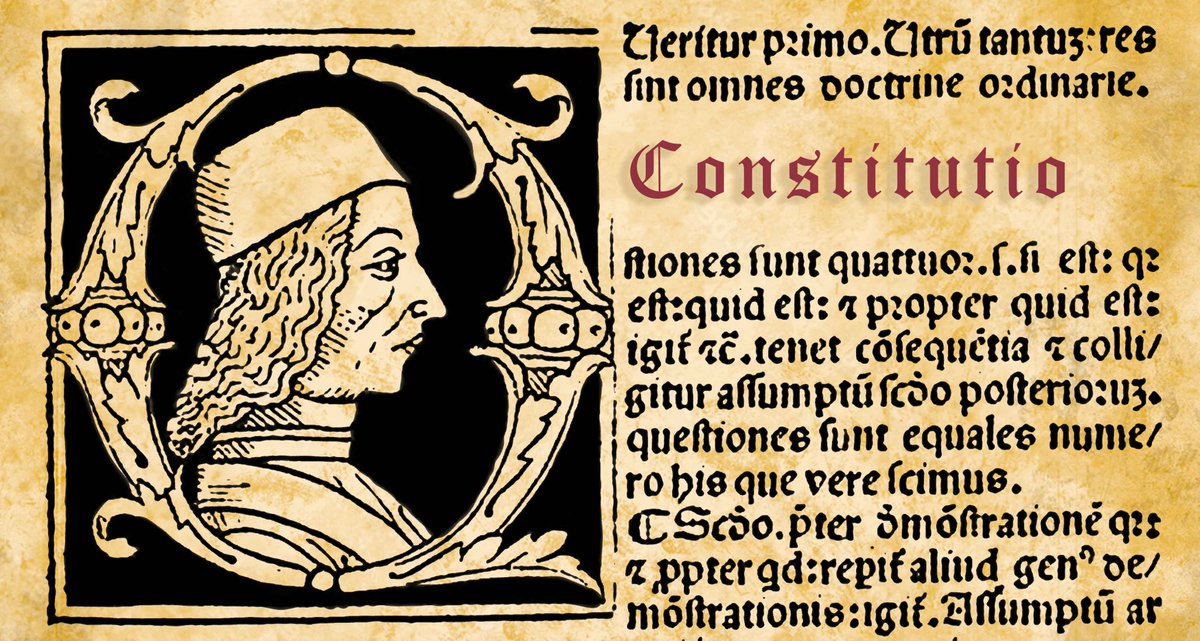 Ueritur primo. Utrũ tantuꝫ: res
ſint omnes doctrine ordinarie.
Constitutio
ſtiones ſunt quattuoꝛ. ſ. ſi eſt: qꝛ
eſt: quid eſt: ⁊ pꝛopter quid eſt:
igiť ⁊c̃. tenet cõſequẽtia ⁊ colli/
gitur aſſumptũ ſcďo poſterioꝛuꝫ.
queſtiones ſunt equales nume/
ro his que vere ſcimus.
ℂ Scďo. p̃ter ďmõſtrationẽ qꝛ:
⁊ ꝓpter qd: repiť aliud genꝰ de/
mõſtrationis: igiť. Aſſumptũ ar